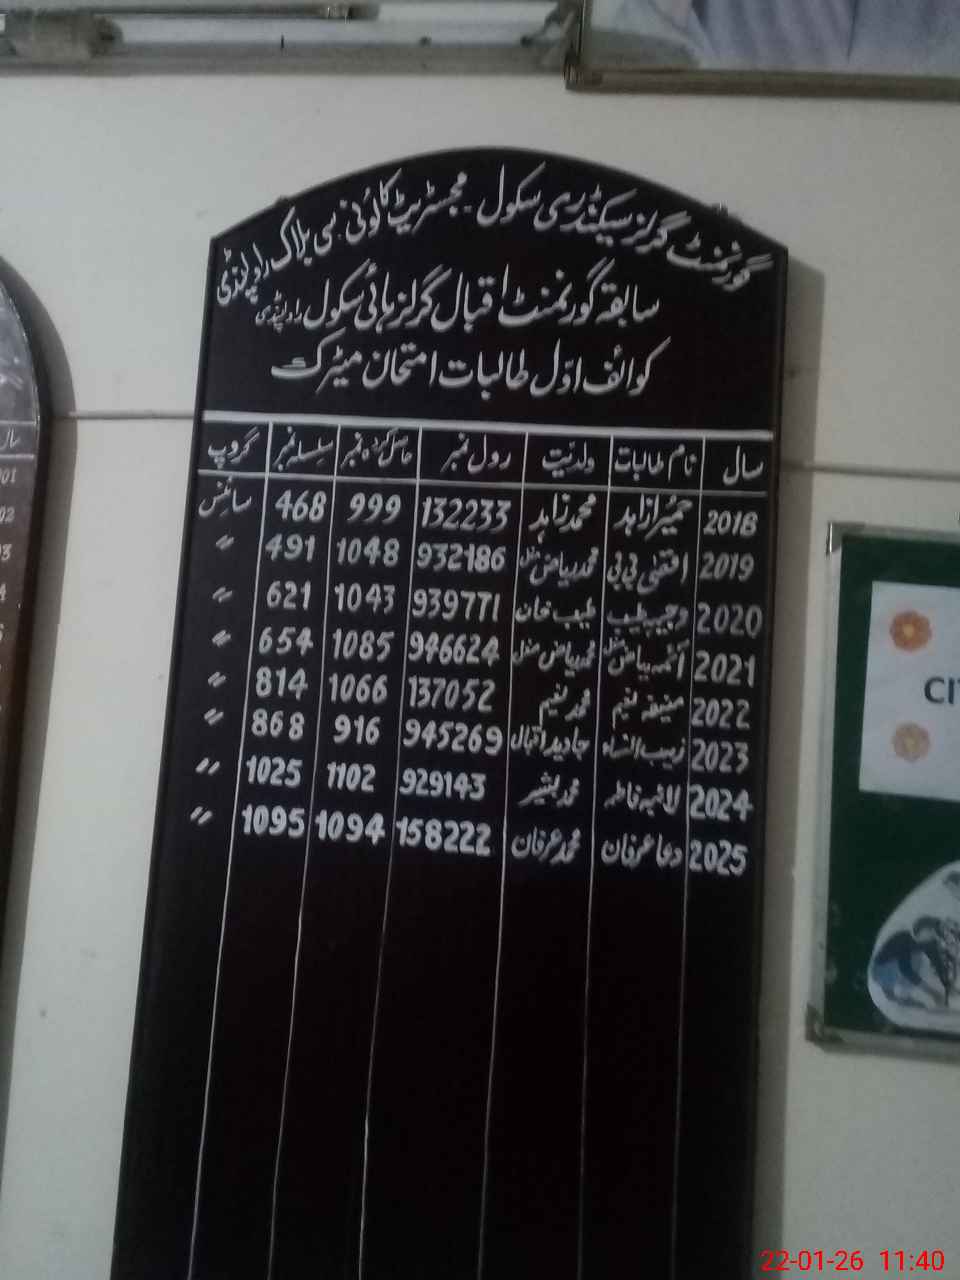 گورنمنٹ گرلز سیکنڈری سکول مجسٹریٹ کالونی سی بلاک راولپنڈی
سابقہ گورنمنٹ اقبال گرلز ہائی سکول راولپنڈی
کوائف اوّل طالبات امتحان میٹرک
سال نام طالبات ولدیّت رول نمبر حاصل کردہ نمبر سلسلہ نمبر گروپ
2018 حمیرا زاہد محمد زاہد 132233 999 468 سائنس
2019 اقصٰی بی بی محمد ریاض مغل 932186 1048 491 〃
2020 وجیہہ طیب طیب خان 939771 1043 621 〃
2021 آئمہ ریاض مغل محمد ریاض مغل 946624 1085 654 〃
2022 محمد نعیم 137052 1066 814 〃
2023 زیب النساء جاوید اقبال 945269 916 868 〃
2024 لائبہ فاطمہ محمد بشیر 929143 1102 1025 〃
2025 دعا عرفان محمد عرفان 158222 1094 1095 〃
سال
CI
22-01-26 11:40